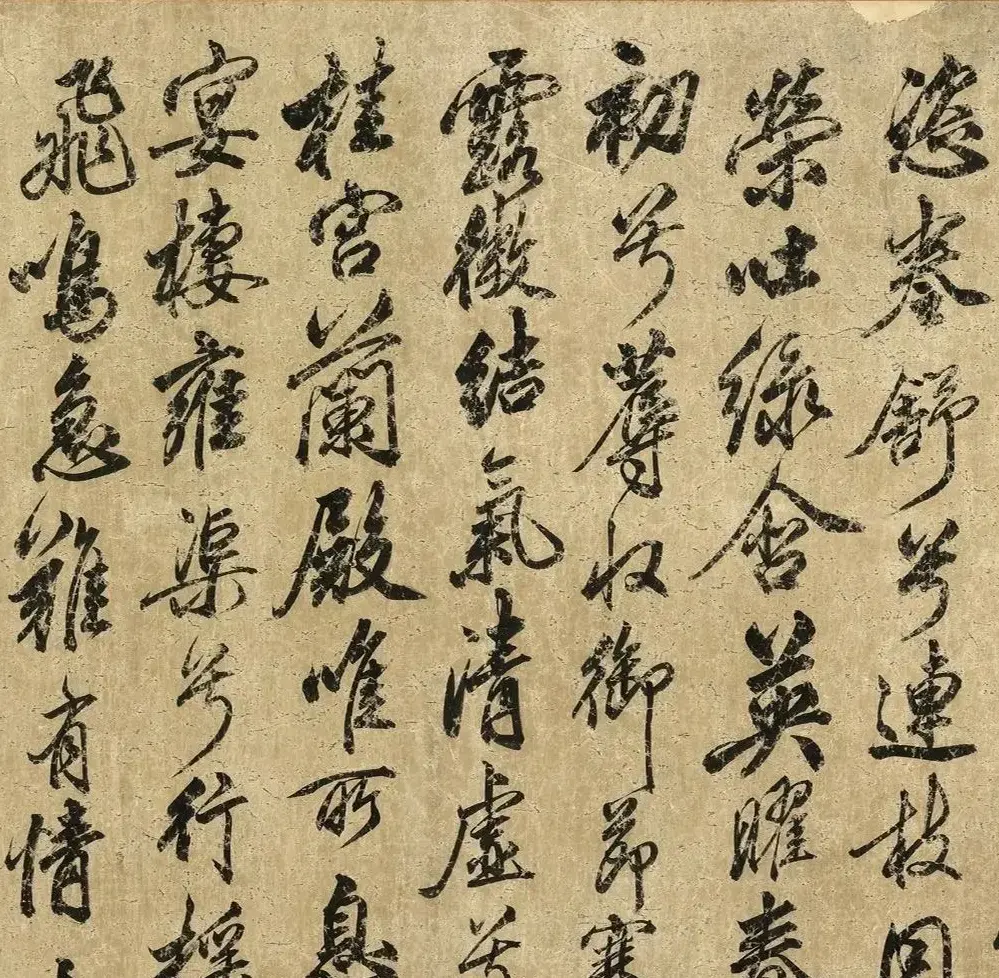 恣卷舒兮連枝同
榮吐綠含英曜春
初兮蓐收御節寒
露微結氣清虛兮
桂宮蘭殿唯所息
宴棲雍渠兮行搖
飛鳴急難有情